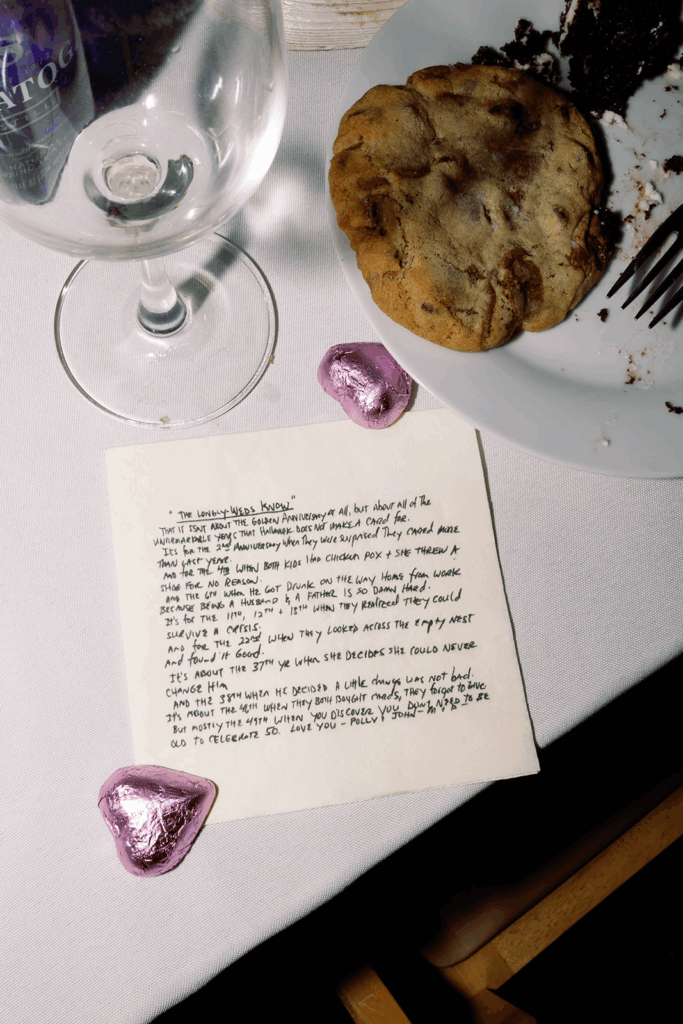 ATOG
"THE LONGLY-WEDS KNOW"
THAT IT ISN'T ABOUT THE GOLDEN ANNIVERSARY AT ALL, BUT ABOUT ALL OF THE
UNREMARKABLE YEARS THAT HALLMARK DOES NOT MAKE A CARD FOR.
IT'S FOR THE 2nd ANNIVERSARY WHEN THEY WERE SURPRISED THEY CARED MORE
THAN LAST YEAR.
AND FOR THE 4TH WHEN BOTH KIDS HAD CHICKEN POX + SHE THREW A
SHOE FOR NO REASON.
AND THE 6TH WHEN HE GOT DRUNK ON THE WAY HOME FROM WORK
BECAUSE BEING A HUSBAND & A FATHER IS SO DAMN HARD.
IT'S FOR THE 11TH, 12TH + 13TH WHEN THEY REALIZED THEY COULD
SURVIVE A CRISIS.
AND FOR THE 22nd WHEN THEY LOOKED ACROSS THE EMPTY NEST
AND FOUND IT GOOD.
IT'S ABOUT THE 37TH YR WHEN SHE DECIDES SHE COULD NEVER
CHANGE HIM
AND THE 38TH WHEN HE DECIDED A LITTLE CHANGE WAS NOT BAD.
IT'S ABOUT THE 48TH WHEN THEY BOTH BOUGHT CARDS, THEY FORGOT TO GIVE
BUT MOSTLY THE 49TH WHEN YOU DISCOVER YOU DON'T NEED TO BE
OLD TO CELEBRATE 50. LOVE YOU - POLLY & JOHN -